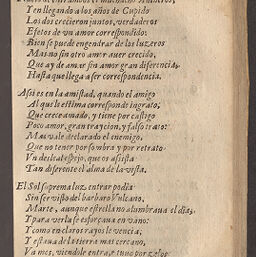 Y en llegando a los años de Cupido
Los dos crecieron juntos, verdaderos
Efetos de vn amor correspondido:
Bien se puede engendrar de los luzeros
Mas no sin otro amor auer crecido,
Que ay de amar sin amor gran diferencia,
Hasta que llega a ser correspondencia.
Assi es en la amistad, quando el amigo
Al que le estima corresponde ingrato,
Que crece amado, y tiene por castigo
Poco amor, gran traycion, y falso trato:
Mas vale declarado el enemigo,
Que no tener por sombra y por retrato
Vn desleal espejo, que os assista
Tan diferente el alma de la vista.
El Sol suprema luz, entrar podia
Sin ser visto del barbaro Vulcano,
Marte, aunque estrella no alumbraua el dia,
Y para verla se esforçaua en vano:
Y como en claros rayos le vencia,
Y estaua de la tierra mas cercano,
Va mes, viendole entrar, tuuo por